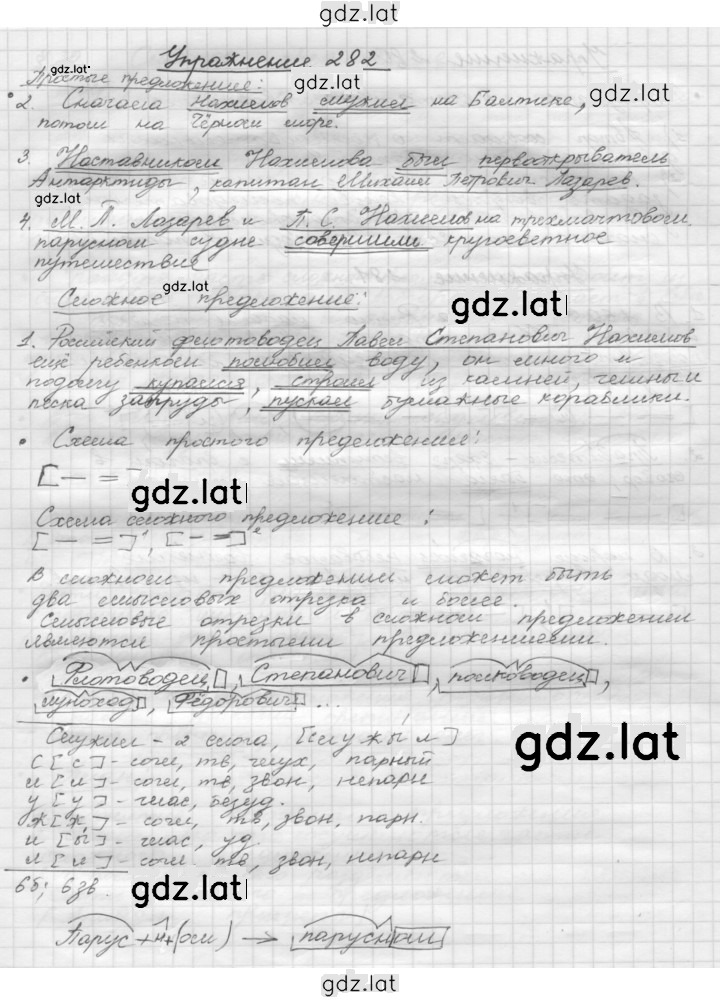 gdz.lat
Упражнение 282
gdz.lat
Простые предложение:
gdz.lat
2. Сначала Нахимов служил на Балтике,
потом на Чёрном море.
gdz.lat
3. Наставником Нахимова был первооткрыватель
Антарктиды, капитан Михаил Петрович Лазарев.
gdz.lat
4. М. П. Лазарев и П. С. Нахимов на трёхмачтовом
парусном судне совершили кругосветное
путешествие
gdz.lat
Сложное предложение:
gdz.lat
1. Российский флотоводец Павел Степанович Нахимов
ещё ребёнком полюбил воду, он много и
подолгу купался, строил из камней, глины и
песка запруды, пускал бумажные кораблики.
• Схема простого предложение:
[— =]
gdz.lat
Схема сложного предложение:
[— =]¹, [— =]²
В сложном предложении может быть
два смысловых отрезка и более.
Смысловые отрезки в сложном предложении
являются простыми предложениями.
• Флотоводец, Степанович, полководец,
луноход, Фёдорович ...
Служил - 2 слога, [служыл]
gdz.lat
с [с] - согл, тв, глух, парный
л [л] - согл, тв, звон, непарн
у [у] - глас, безуд.
ж [ж] - согл, тв, звон, парн.
и [ы] - глас, уд.
л [л] - согл тв, звон, непарн
6б; 6зв.
gdz.lat
Парус + н + (ом) → парусном
gdz.lat